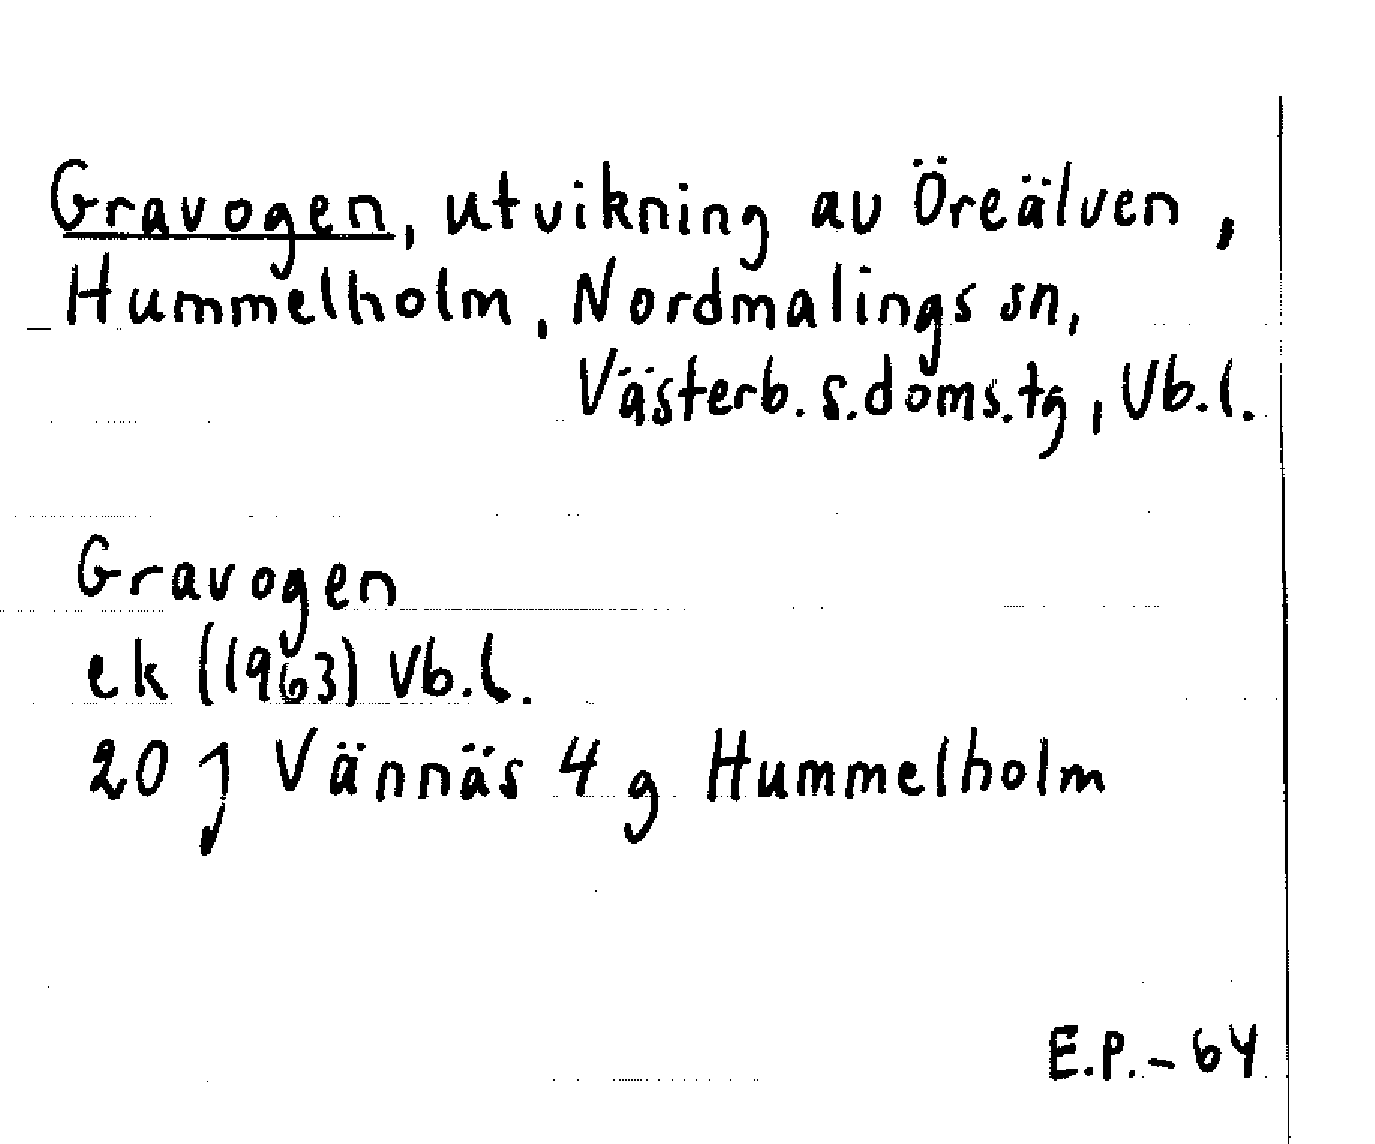 Gravogen, utvikning av Öreälven,
Hummelholm, Nordmalings sn,
Västerb. s. doms. tg, Vb. l.
Gravogen
ek (1963) Vb. l.
20 J Vännäs 4 g Hummelholm
E.P. - 64